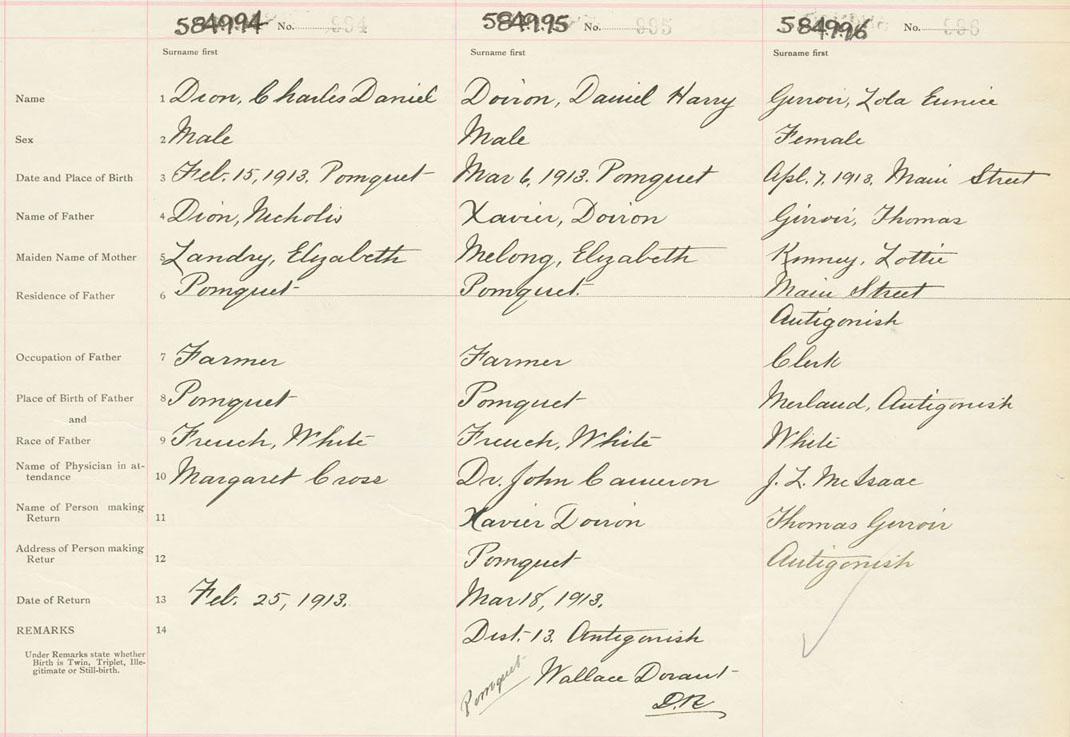 584994 No. 994 584995 No. 995 584996 No. 996
Surname first Surname first Surname first
Name 1 Dion, Charles Daniel Doiron, Daniel Harry Girroir, Zola Eunice
Sex 2 Male Male Female
Date and Place of Birth 3 Feb. 15, 1913. Pomquet Mar 6, 1913. Pomquet Apl. 7, 1913. Main Street
Name of Father 4 Dion, Nicholis Xavier, Doiron Girroir, Thomas
Maiden Name of Mother 5 Landry, Elizabeth Melong, Elizabeth Kinney, Lottie
Residence of Father 6 Pomquet Pomquet. Main Street
Antigonish
Occupation of Father 7 Farmer Farmer Clerk
Place of Birth of Father 8 Pomquet Pomquet Merland, Antigonish
and
Race of Father 9 French, White French, White White
Name of Physician in at-
tendance 10 Margaret Cross Dr. John Cameron J. L. McIsaac
Name of Person making
Return 11 Xavier Doiron Thomas Girroir
Address of Person making
Retur 12 Pomquet Antigonish
Date of Return 13 Feb. 25, 1913. Mar 18, 1913.
REMARKS 14 Dist. 13. Antigonish
Under Remarks state whether
Birth is Twin, Triplet, Ille-
gitimate or Still-birth.
Pomquet Wallace Dorant
D.R